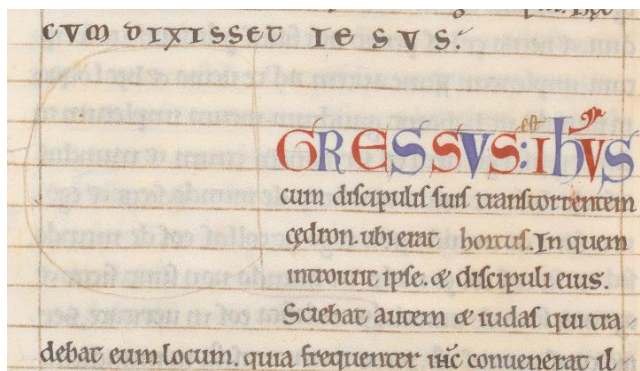 CVM DIXISSET IESVS.
est
GRESSVS: IhVS
cum discipulis suis transtorrentem
cedron. ubi erat hortus. In quem
introiuit ipse. & discipuli eius.
Sciebat autem & iudas qui tra
debat eum locum. quia frequenter ihc conuenerat il